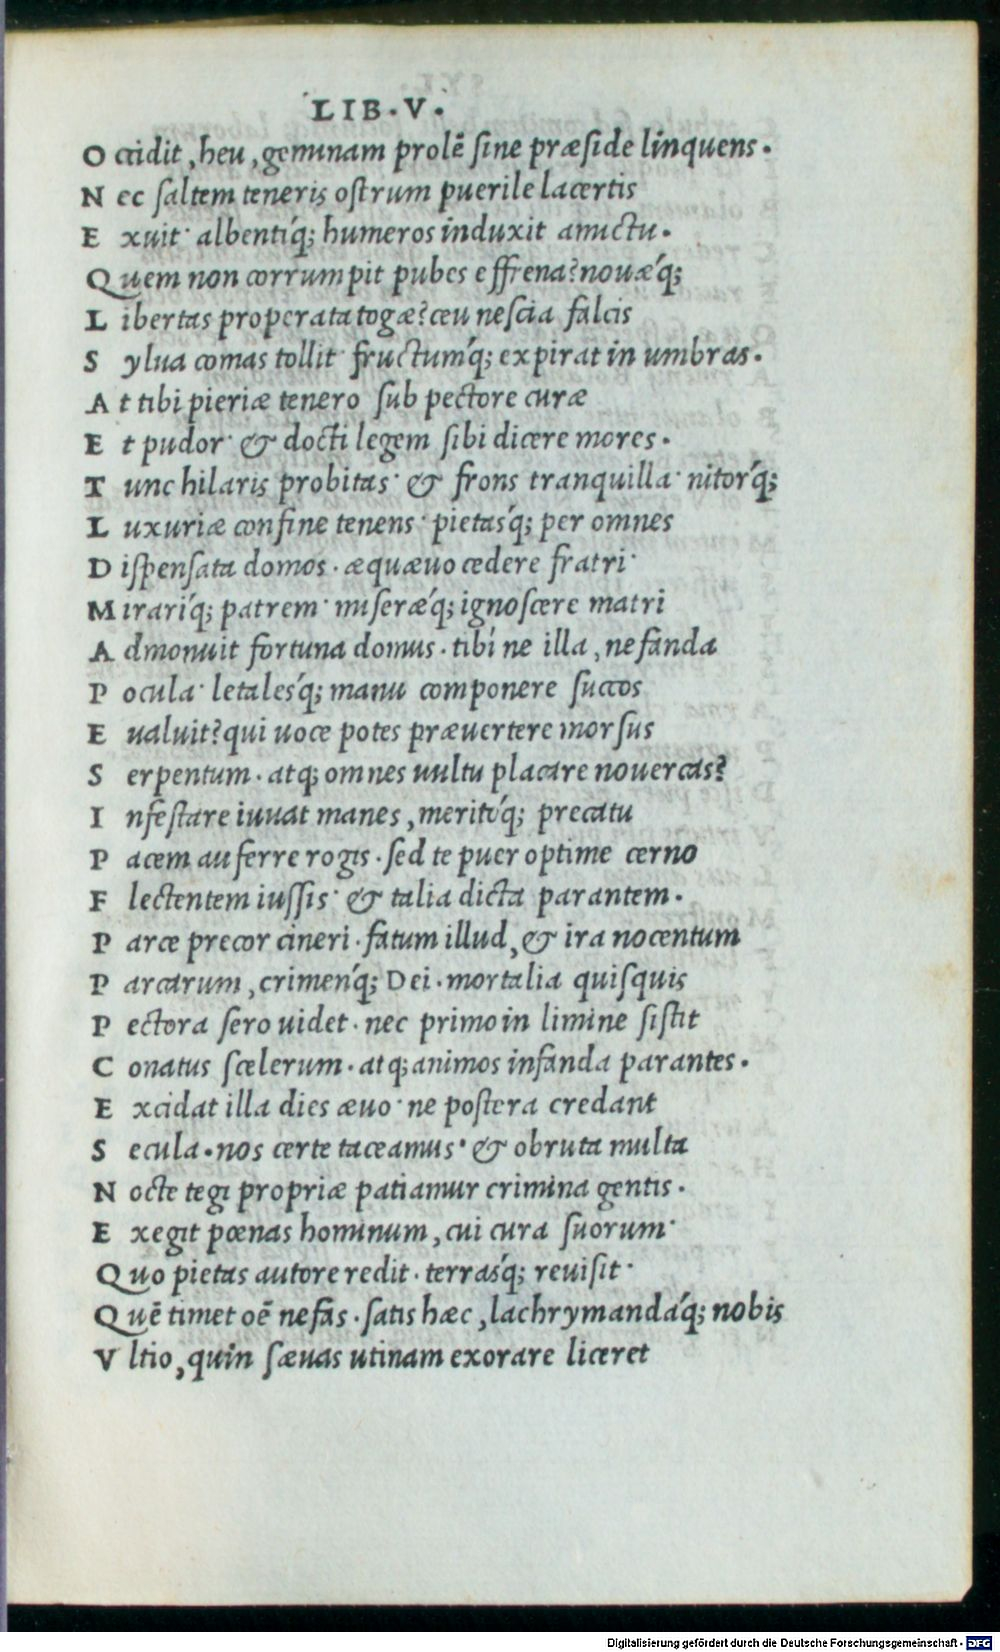 LIB.V.
Occidit, heu, geminam prolē sine præside linquens.
Nec saltem teneris ostrum puerile lacertis
Exuit· albentíq; humeros induxit amictu.
Quem non corrumpit pubes effrena? nouæ´q;
Libertas properata togæ? ceu nescia falcis
Sylua comas tollit· fructum´q; expirat in umbras.
At tibi pieriæ tenero sub pectore curæ
Et pudor· & docti legem sibi dicere mores.
Tunc hilaris probitas· & frons tranquilla· nitor´q;
Luxuriæ confine tenens· pietas´q; per omnes
Dispensata domos. æquæuo cedere fratri·
Mirarí´q; patrem· miseræ´q; ignoscere matri
Admonuit fortuna domus. tibí ne illa, nefanda
Pocula· letales´q; manu componere succos
Eualuit? qui uoce potes præuertere morsus
Serpentum. atq; omnes uultu placare nouercas?
Infestare iuuat manes, meritó´q; precatu
Pacem auferre rogis. sed te puer optime cerno
Flectentem iussis· & talia dicta parantem.
Parce precor cineri. fatum illud, & ira nocentum
Parcarum, crimen´q; Dei. mortalia quisquis
Pectora sero uidet. nec primo in limine sistit
Conatus scelerum. atq; animos infanda parantes.
Excidat illa dies æuo· ne postera credant
Secula. nos certe taceamus· & obruta multa
Nocte tegi propriæ patiamur crimina gentis.
Exegit pœnas hominum, cui cura suorum·
Quo pietas autore redit. terras´q; reuisit·
Quē timet oē nefas. satis hæc, lachrymandá´q; nobis
Vltio, quin sæuas utinam exorare liceret
Digitalisierung gefördert durch die Deutsche Forschungsgemeinschaft - DFG